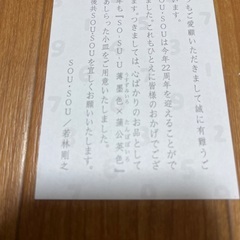 つもご愛顧いただきまして誠に有難うご
います。
SOU・SOUは今年22周年を迎えることがで
ました。これもひとえに皆様のおかげでござ
ます。つきましては、心ばかりのお品として
年も『SO-SU-U 薄墨色×蒲公英色』
うすずみいろ たんぽぽいろ
あしらった小皿をご用意いたしました。
後共SOU・SOUを宜しくお願いいたします。
SOU・SOU／若林剛之